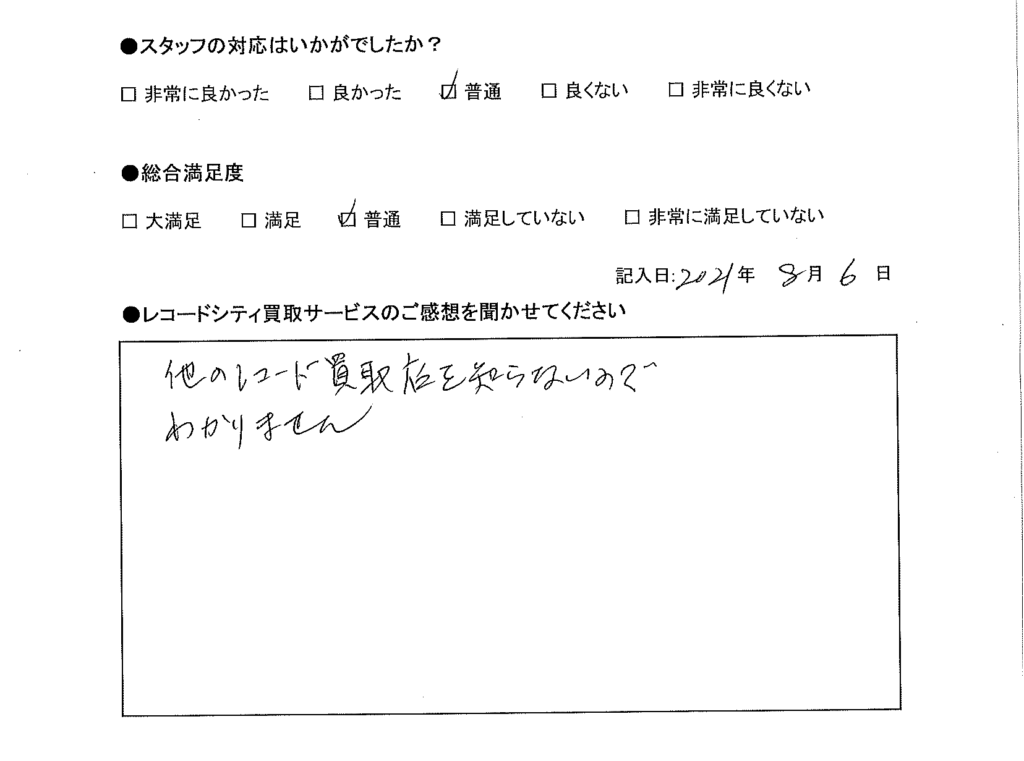 ●スタッフの対応はいかがでしたか？
□ 非常に良かった □ 良かった ☑ 普通 □ 良くない □ 非常に良くない
●総合満足度
□ 大満足 □ 満足 ☑ 普通 □ 満足していない □ 非常に満足していない
記入日:2021年 8月 6日
●レコードシティ買取サービスのご感想を聞かせてください
他のレコード買取店を知らないので
わかりません